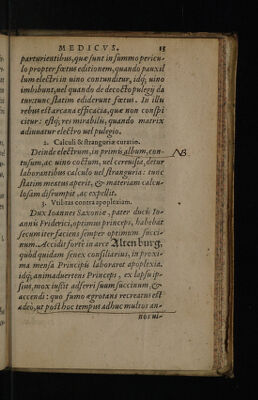 MEDICVS. 15
parturientibus, quæ sunt in summo pericu-
lo propter fœtus editionem, quando pauxil
lum electri in uino contunditur, idq; uino
imbibunt, uel quando de decocto pulegij da
tur: tunc statim ediderunt fœtus. In illu
rebus est arcana efficacia, quæ non conspi
citur: estq; res mirabilis, quando matrix
adiuuatur electro uel pulegio.
2. Calculi & stranguriæ curatio.
Deinde electrum, in primis album, con-
NB
tusum, ac uino coctum, uel cereuisia, detur
laborantibus calculo uel stranguria: tunc
statim meatus aperit, & materiam calcu-
losam disrumpit, ac expellit.
3. Vtilitas contra apoplexiam.
Dux Ioannes Saxoniæ, pater ducis Io-
annis Friderici, optimus princeps, habebat
secum iter faciens semper optimum succi-
num. Accidit forte in arce Altenburg,
quòd quidam senex consiliarius, in proxi-
ma mensa Principis laboraret apoplexia.
idq; animaduertens Princeps, ex lapsu ip-
sius, mox iussit adferri suum succinum, &
accendi: quo fumo ægrotans recreatus est
adeò, ut post hoc tempus adhuc multos an-
nos ui-